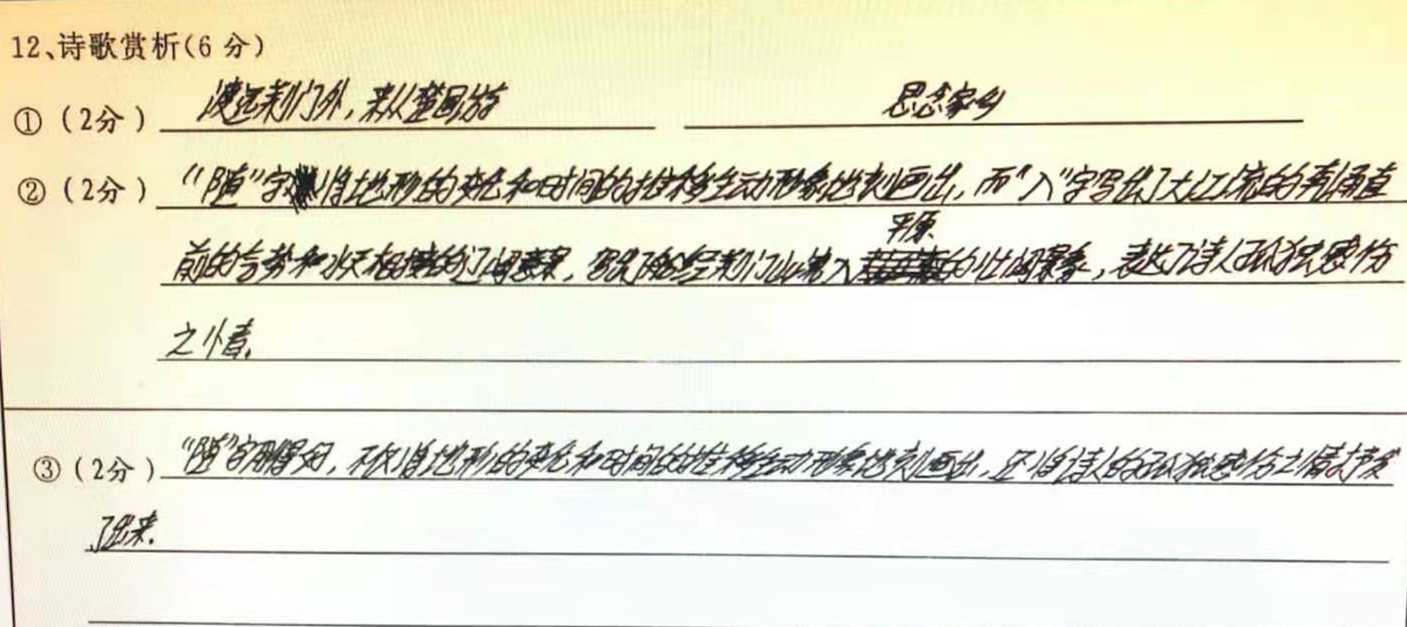 12、诗歌赏析(6 分)
①（2分） 渡远荆门外，来从楚国游 思念家乡
②（2分） “随”字将地形的变化和时间的推移生动形象地刻画出，而“入”字写出了大江流的有涌直
平原
前的气势和水天相接的辽阔意景，写出了船经荆门山流入的壮阔景象，表达了诗人孤独感伤
之情。
③（2分） “随”字用得好，不仅将地形的变化和时间的推移生动形象地刻画出，还将诗人的孤独感伤之情抒发
了出来.